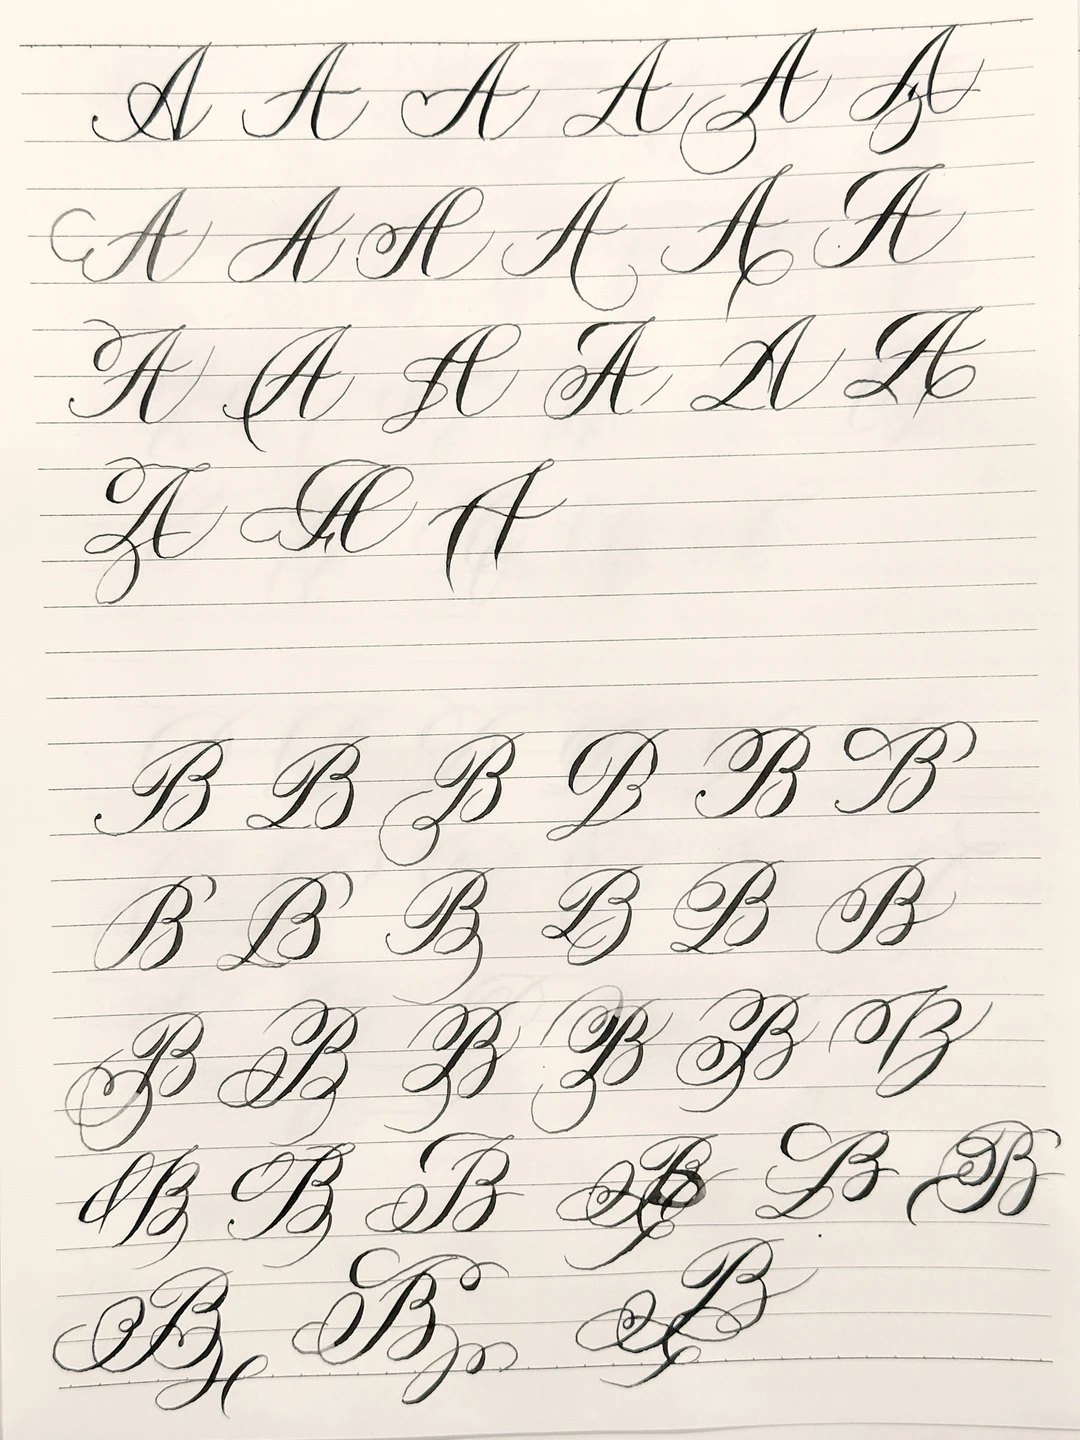 A A A A A A
A A A A A A
A A A A A A
A A A
B B B B B B
B B B B B B
B B B B B B
B B B B B B
B B B